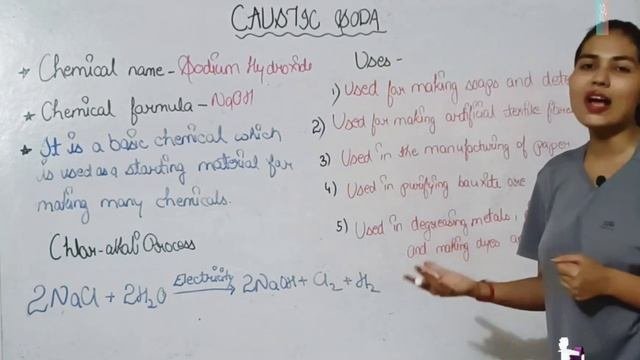 CAUSTIC SODA
* Chemical name - Sodium Hydroxide
* Chemical formula - NaOH
* It is a basic chemical which
is used as a starting material for
making many chemicals.
Chlor-alkali Process
2NaCl + 2H₂O Electricity → 2NaOH + Cl₂ + H₂
Uses -
1) Used for making soaps and
2) Used for making artificial textile
3) Used in the manufacturing of paper
4) Used in purifying bauxite
5) Used in degreasing metals,
and making dyes